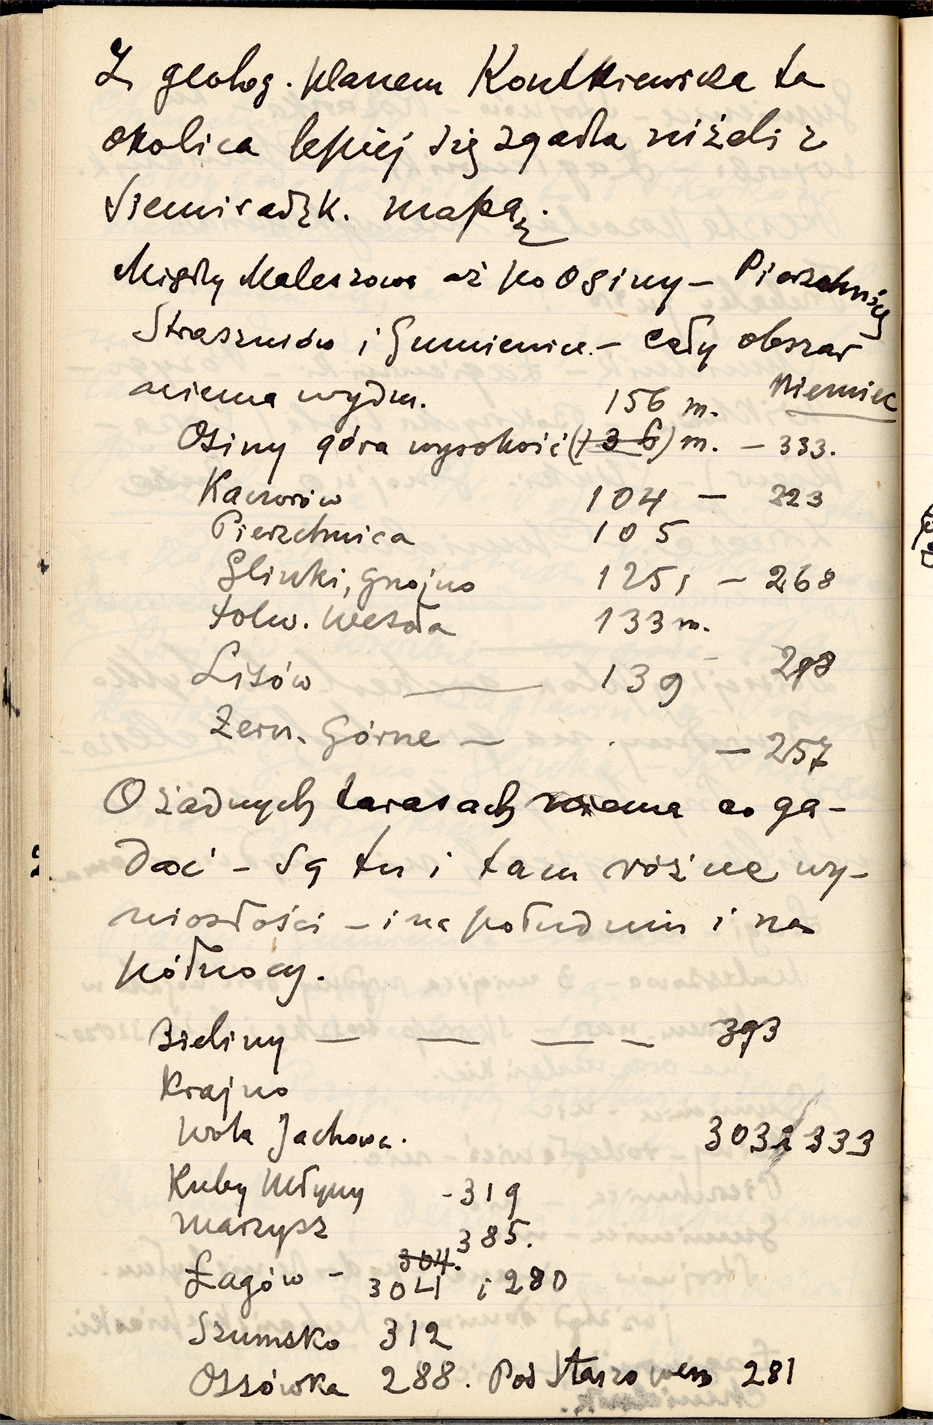 Z geolog. planem Kontkiewicza ta
okolica lepiej się zgadza niżeli z
Siemiradzk. mapą.
Między Maleszowa aż po Osiny – Pierzchnicę
Straszniów i Gumienice – cały obszar
niema wydm. 156 m. Niemiec
Osiny góra wysokość (136) m. – 333.
Kaczorów 104 – 223
Pierzchnica 105
Glinki, Gnojno 125, – 268
folw. Wesoła 133 m.
Lisów — 139 298
Zern. Górne — – 257
O żadnych tarasach niema co ga-
dać – Są tu i tam różne wy-
niosłości – i na południu i na
północy.
Bieliny — — — — 393
Krajno
Wola Jachowa. 303 333
Kuby Młyny - 319
Marzysz 385.
304.
Łagów – 304 i 280
Szumsko 312
Ossówka 288. Pod Staszowem 281